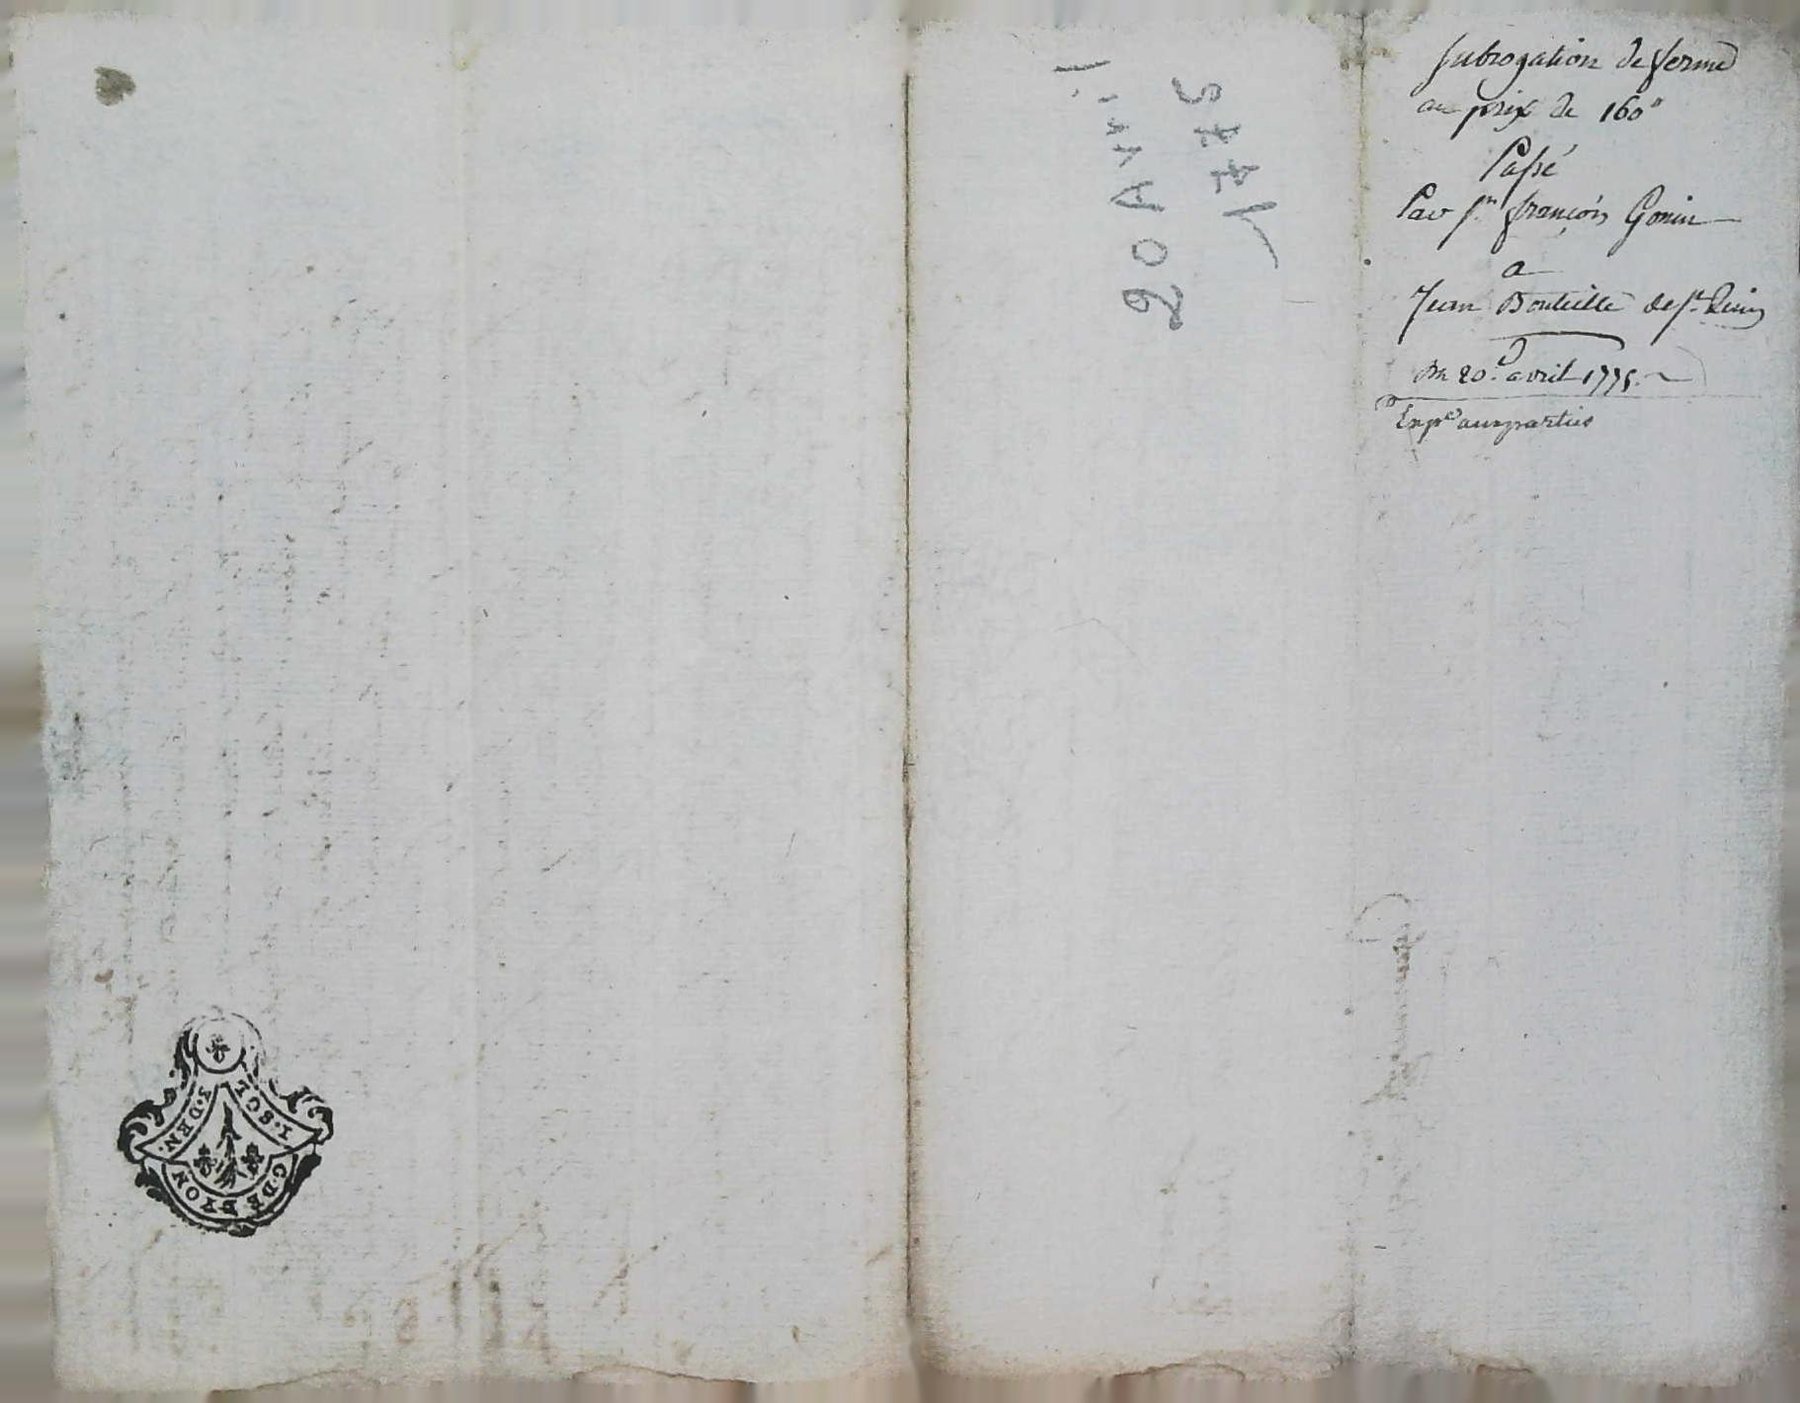 Subrogation de ferme
au prix de 160"
Passé
Par Sr. françois Gonin
a
Jean Bouteille de St.
Du 20.e avril 1775.
Exp.é aux parties
20 Avril
1775
I. SOL
3. DEN.
G. DE LYON